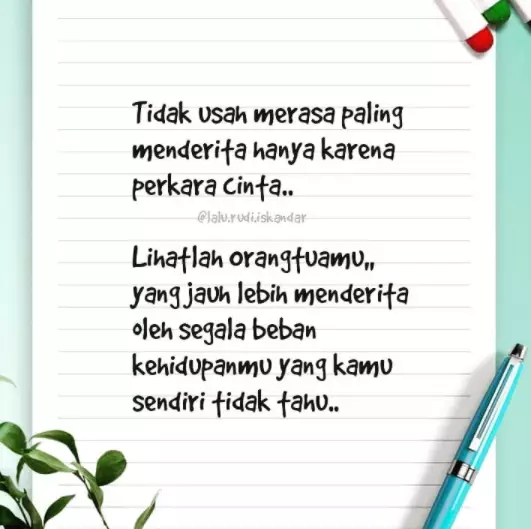 Tidak usah merasa paling
menderita hanya karena
perkara Cinta..
@lalu.rudi.iskandar
Lihatlah orangtuamu,,
yang jauh lebih menderita
oleh segala beban
kehidupanmu yang kamu
sendiri tidak tahu..